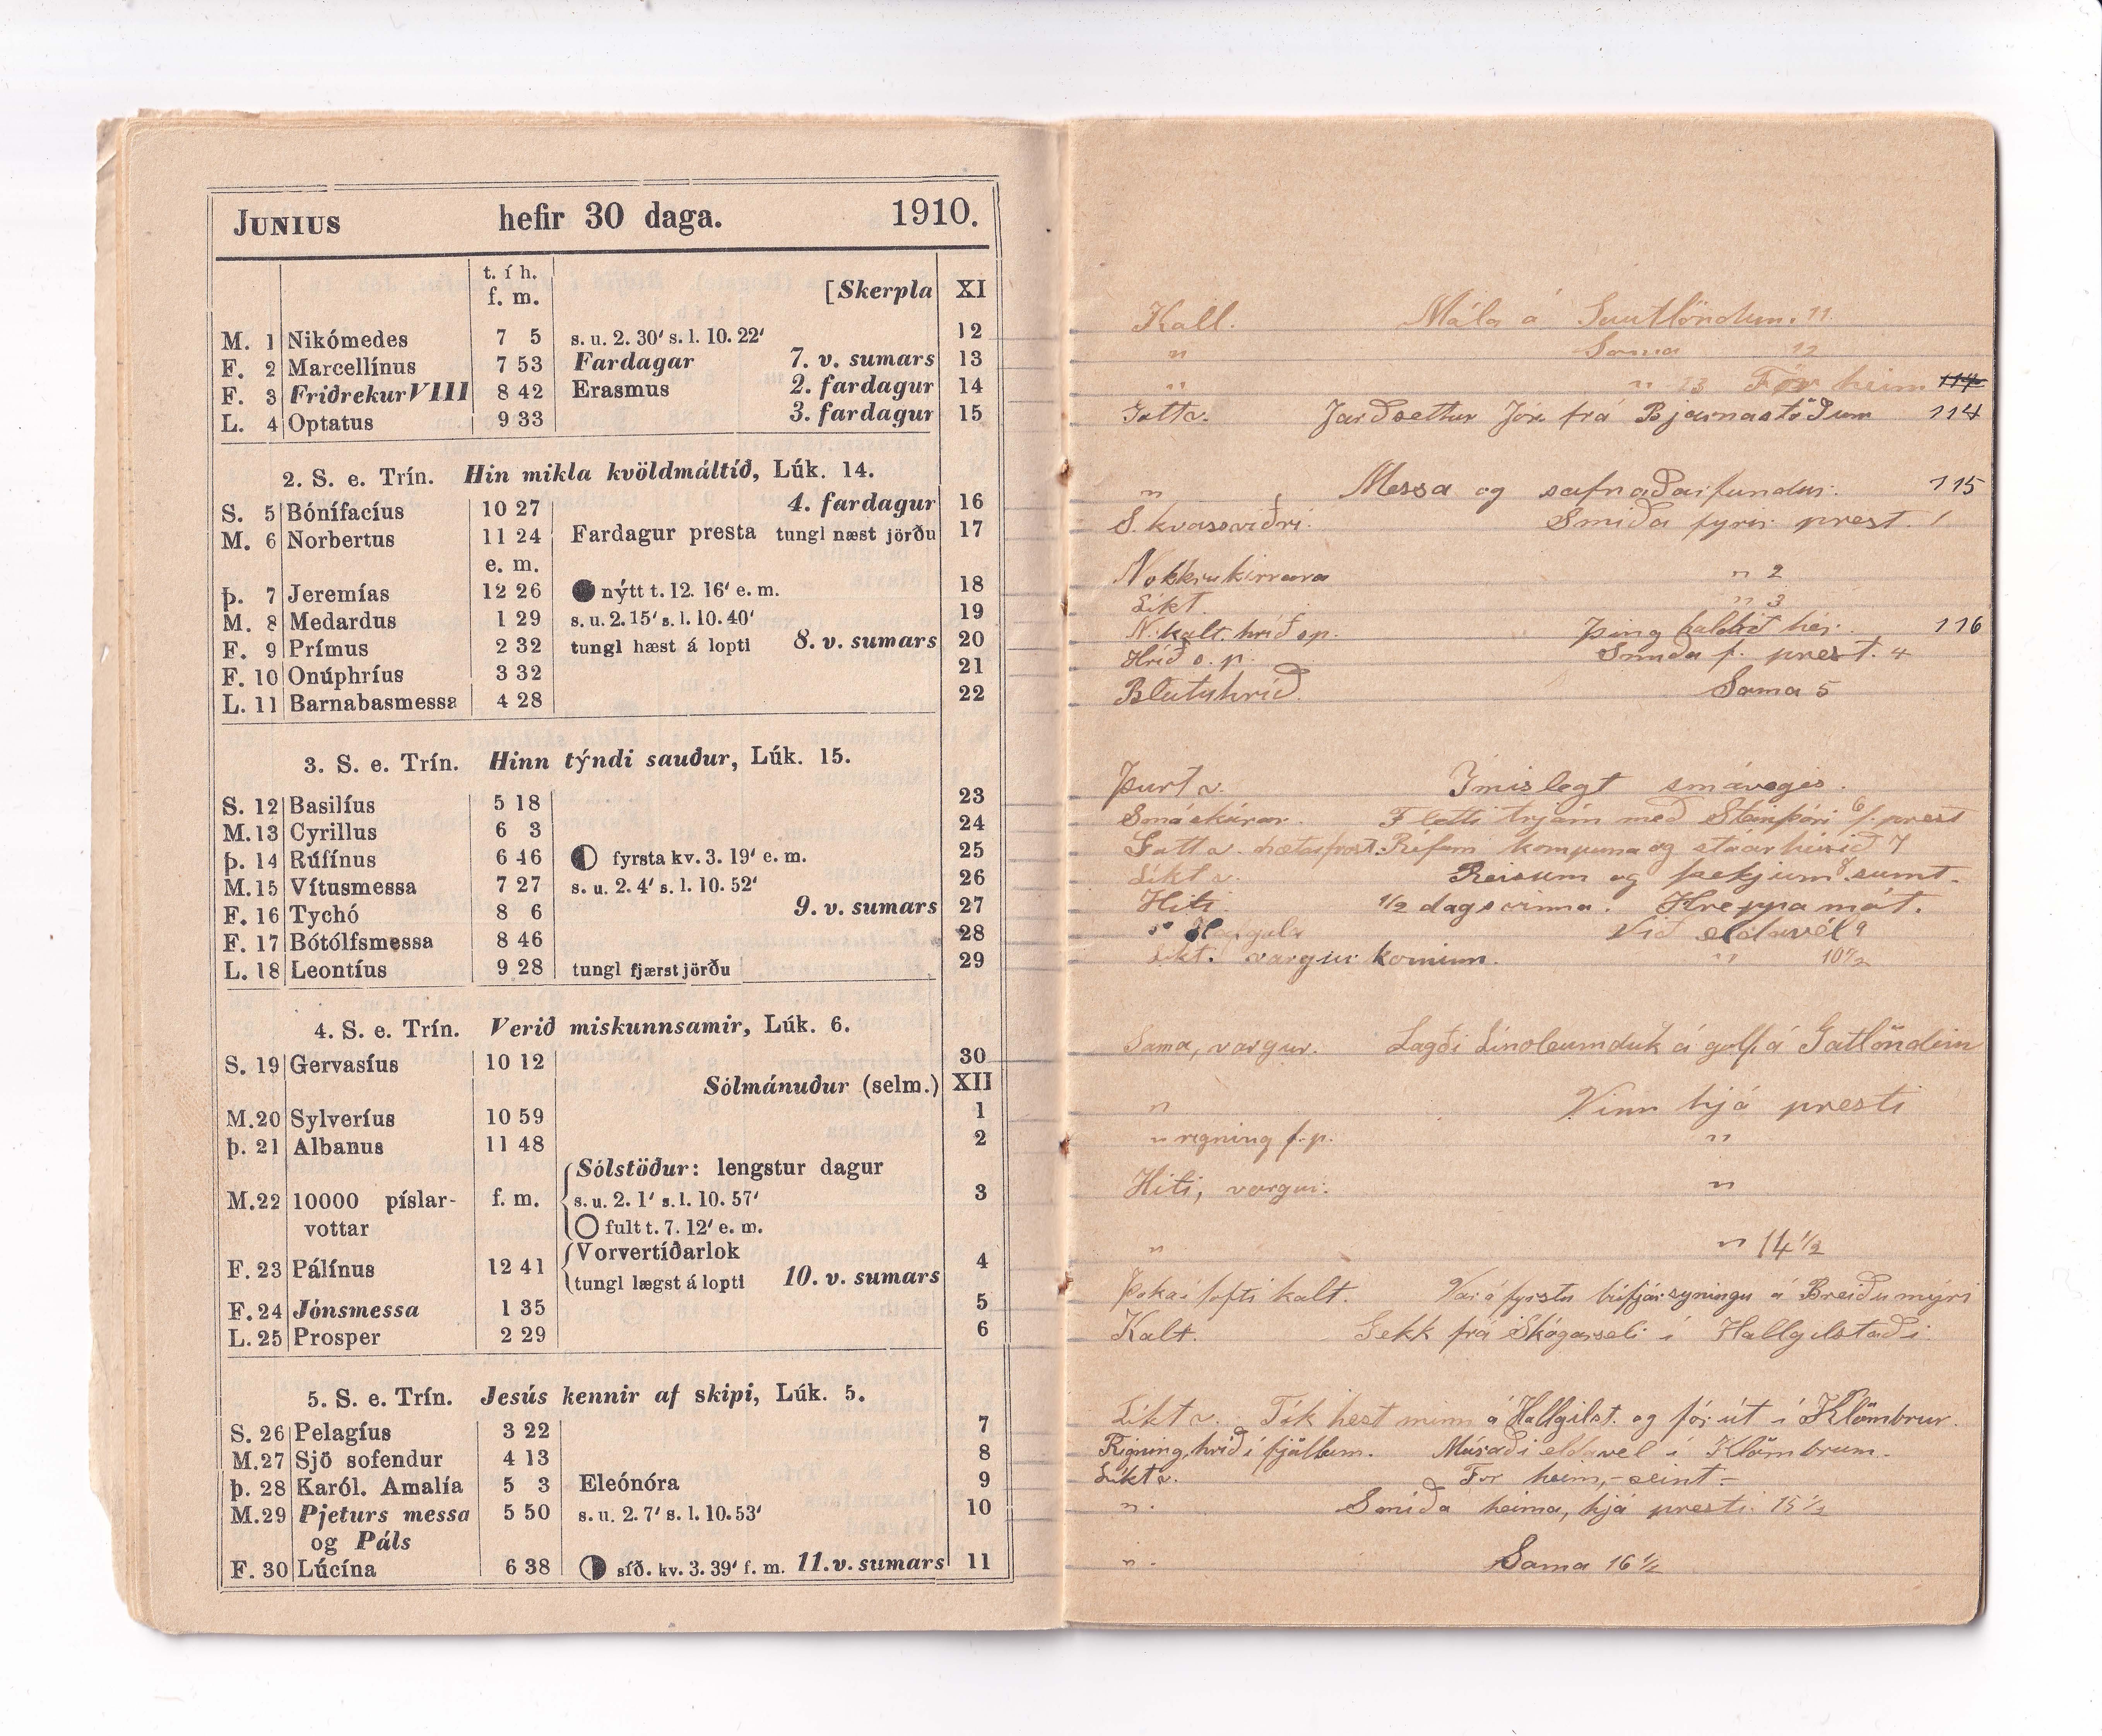 JUNIUS hefir 30 daga. 1910.
t. í h.
f. m. [Skerpla XI
M. 1 Nikómedes 7 5 s. u. 2. 30′ s. l. 10. 22′ 12
F. 2 Marcellínus 7 53 Fardagar 7. v. sumars 13
F. 3 Friðrekur VIII 8 42 Erasmus 2. fardagur 14
L. 4 Optatus 9 33 3. fardagur 15
2. S. e. Trín. Hin mikla kvöldmáltíð, Lúk. 14.
S. 5 Bónífacíus 10 27 4. fardagur 16
M. 6 Norbertus 11 24 Fardagur presta tungl næst jörðu 17
e. m.
Þ. 7 Jeremías 12 26 nýtt t. 12. 16′ e. m. 18
M. 8 Medardus 1 29 s. u. 2. 15′ s. l. 10. 40′ 19
F. 9 Prímus 2 32 tungl hæst á lopti 8. v. sumars 20
F. 10 Onúphríus 3 32 21
L. 11 Barnabasmessa 4 28 22
3. S. e. Trín. Hinn týndi sauður, Lúk. 15.
S. 12 Basilíus 5 18 23
M. 13 Cyrillus 6 3 24
Þ. 14 Rúfínus 6 46 fyrsta kv. 3. 19′ e. m. 25
M. 15 Vítusmessa 7 27 s. u. 2. 4′ s. l. 10. 52′ 26
F. 16 Tychó 8 6 9. v. sumars 27
F. 17 Bótólfsmessa 8 46 28
L. 18 Leontíus 9 28 tungl fjærst jörðu 29
4. S. e. Trín. Verið miskunnsamir, Lúk. 6.
S. 19 Gervasíus 10 12 30
Sólmánuður (selm.) XII
M. 20 Sylveríus 10 59 1
Þ. 21 Albanus 11 48 2
Sólstöður: lengstur dagur
M. 22 10000 píslar- f. m. s. u. 2. 1′ s. l. 10. 57′ 3
vottar fult t. 7. 12′ e. m.
Vorvertíðarlok
F. 23 Pálínus 12 41 4
tungl lægst á lopti 10. v. sumars
F. 24 Jónsmessa 1 35 5
L. 25 Prosper 2 29 6
5. S. e. Trín. Jesús kennir af skipi, Lúk. 5.
S. 26 Pelagíus 3 22 7
M. 27 Sjö sofendur 4 13 8
Þ. 28 Karól. Amalía 5 3 Eleónóra 9
M. 29 Pjeturs messa 5 50 s. u. 2. 7′ s. l. 10. 53′ 10
og Páls
F. 30 Lúcína 6 38 síð. kv. 3. 39′ f. m. 11. v. sumars 11
Kalt. Mála á 11.
" Sama 12
" " 13 Fór heim
Jarðsettur Jón frá Bjarnastöðum 114
" Messa og safnaðarfundur. 115
S. kvassviðri. Smíða fyrir prest. 1
" 2
Líkt. " 3
N. kalt. hríð s.p. Þing haldið hér. 116
Hríð s. p. Smíða f. prest. 4
Bleytuhríð. Sama 5
Þurt v. Ímislegt smávegis.
Smáskúrar. Fletti trjám með Steinþóri f. prest 6
og 7
Líkt v. Reisum og þekjum sumt. 8
Hiti. 1/2 dagsvinna. Hreppamót.
" Við eldavél 9
Líkt. vargur kominn. " 10 1/2
Sama, vargur. Lagði Linoleumdúk á gólf á Gatlöndum
" Vinn hjá presti
" rigning f. p. "
Hiti, vargur. "
" " 14 1/2
Þoka í lofti kalt. Var á fyrstu búfjársýningu á Breiðumýri
Kalt. Gekk frá Skógarseli í Hallgilstaði.
Líkt v. Tók hest minn á Hallgilst. og fór út í Klömbrur.
Rigning, hríð í fjöllum. Múraði eldavél í Klömbrum.
Líkt v. Fór heim, - seint -
" Smíða heima, hjá presti 15 1/2
" Sama 16 1/2